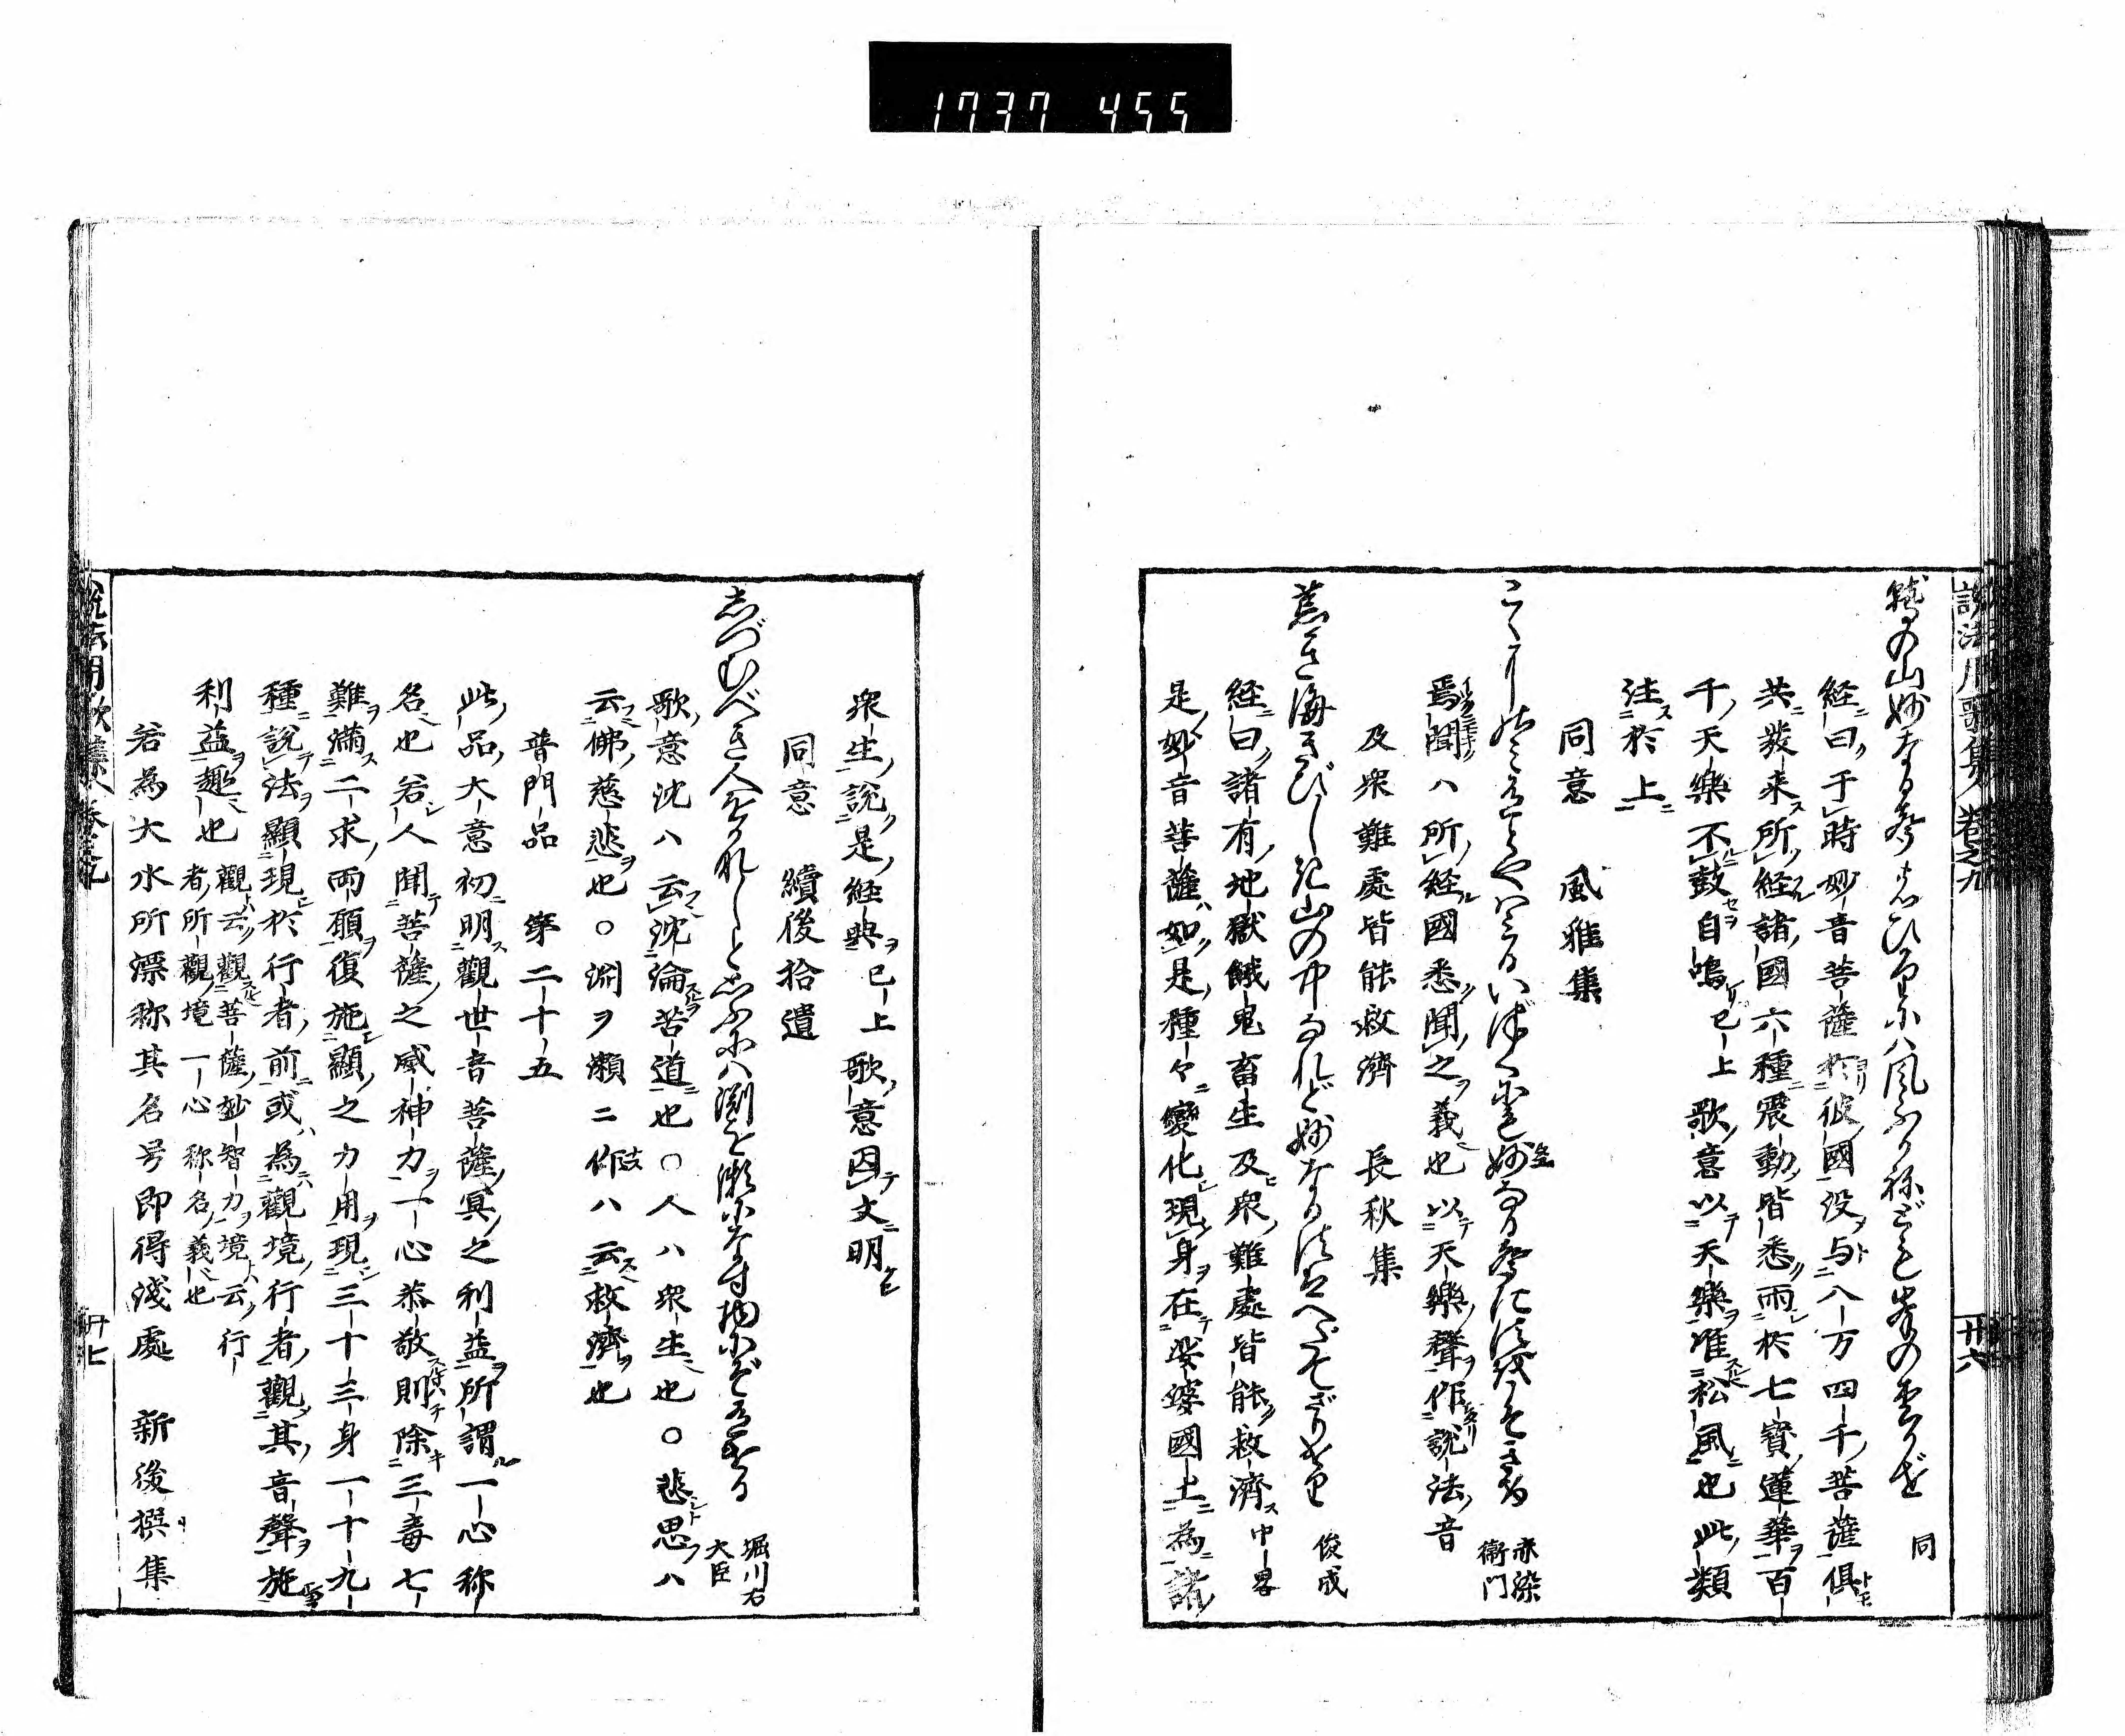 1737 455
説法用歌集 巻之九
廿六
鷲の山妙なる
同
経曰于時妙音菩薩於彼國没与八万四千菩薩俱
共發来所経諸國六種震動皆悉雨於七寶蓮華百
千天樂不鼓自鳴已上歌意以天樂准松風也此類
注於上
同意 風雅集
赤染衛門
焉聞ハ所経國悉聞之義也以天樂聲作説法音
及衆難處皆能救濟 長秋集
荒き海きびしき山の中なれど妙なる法はへだてざりけり
俊成
経曰諸有地獄餓鬼畜生及衆難處皆能救濟中畧
是妙音菩薩如是種々變化現身在娑婆國土為諸
衆生説是経典已上歌意因文明
同意 續後拾遺
しづむべき人をかなしと思ふにハ渕を瀬になす物にぞ有ける
堀川右大臣
歌意沈ハ云沈淪苦道也○人ハ衆生也○悲思ハ
云佛慈悲也○渕ヲ瀬ニ作ハ云救濟也
普門品 第二十五
此品大意初明觀世音菩薩冥之利益所謂一心称
名也若人聞菩薩之威神力一心恭敬則除三毒七
難満二求両願復施顯之力用現三十三身一十九
種説法顯現於行者前或為觀境行者觀其音聲施
利益趣也 觀云觀菩薩妙智力境云行
者所觀境一心称名義也
若為大水所漂称其名号即得浅處 新後撰集
説法用歌集 巻之九
廿七